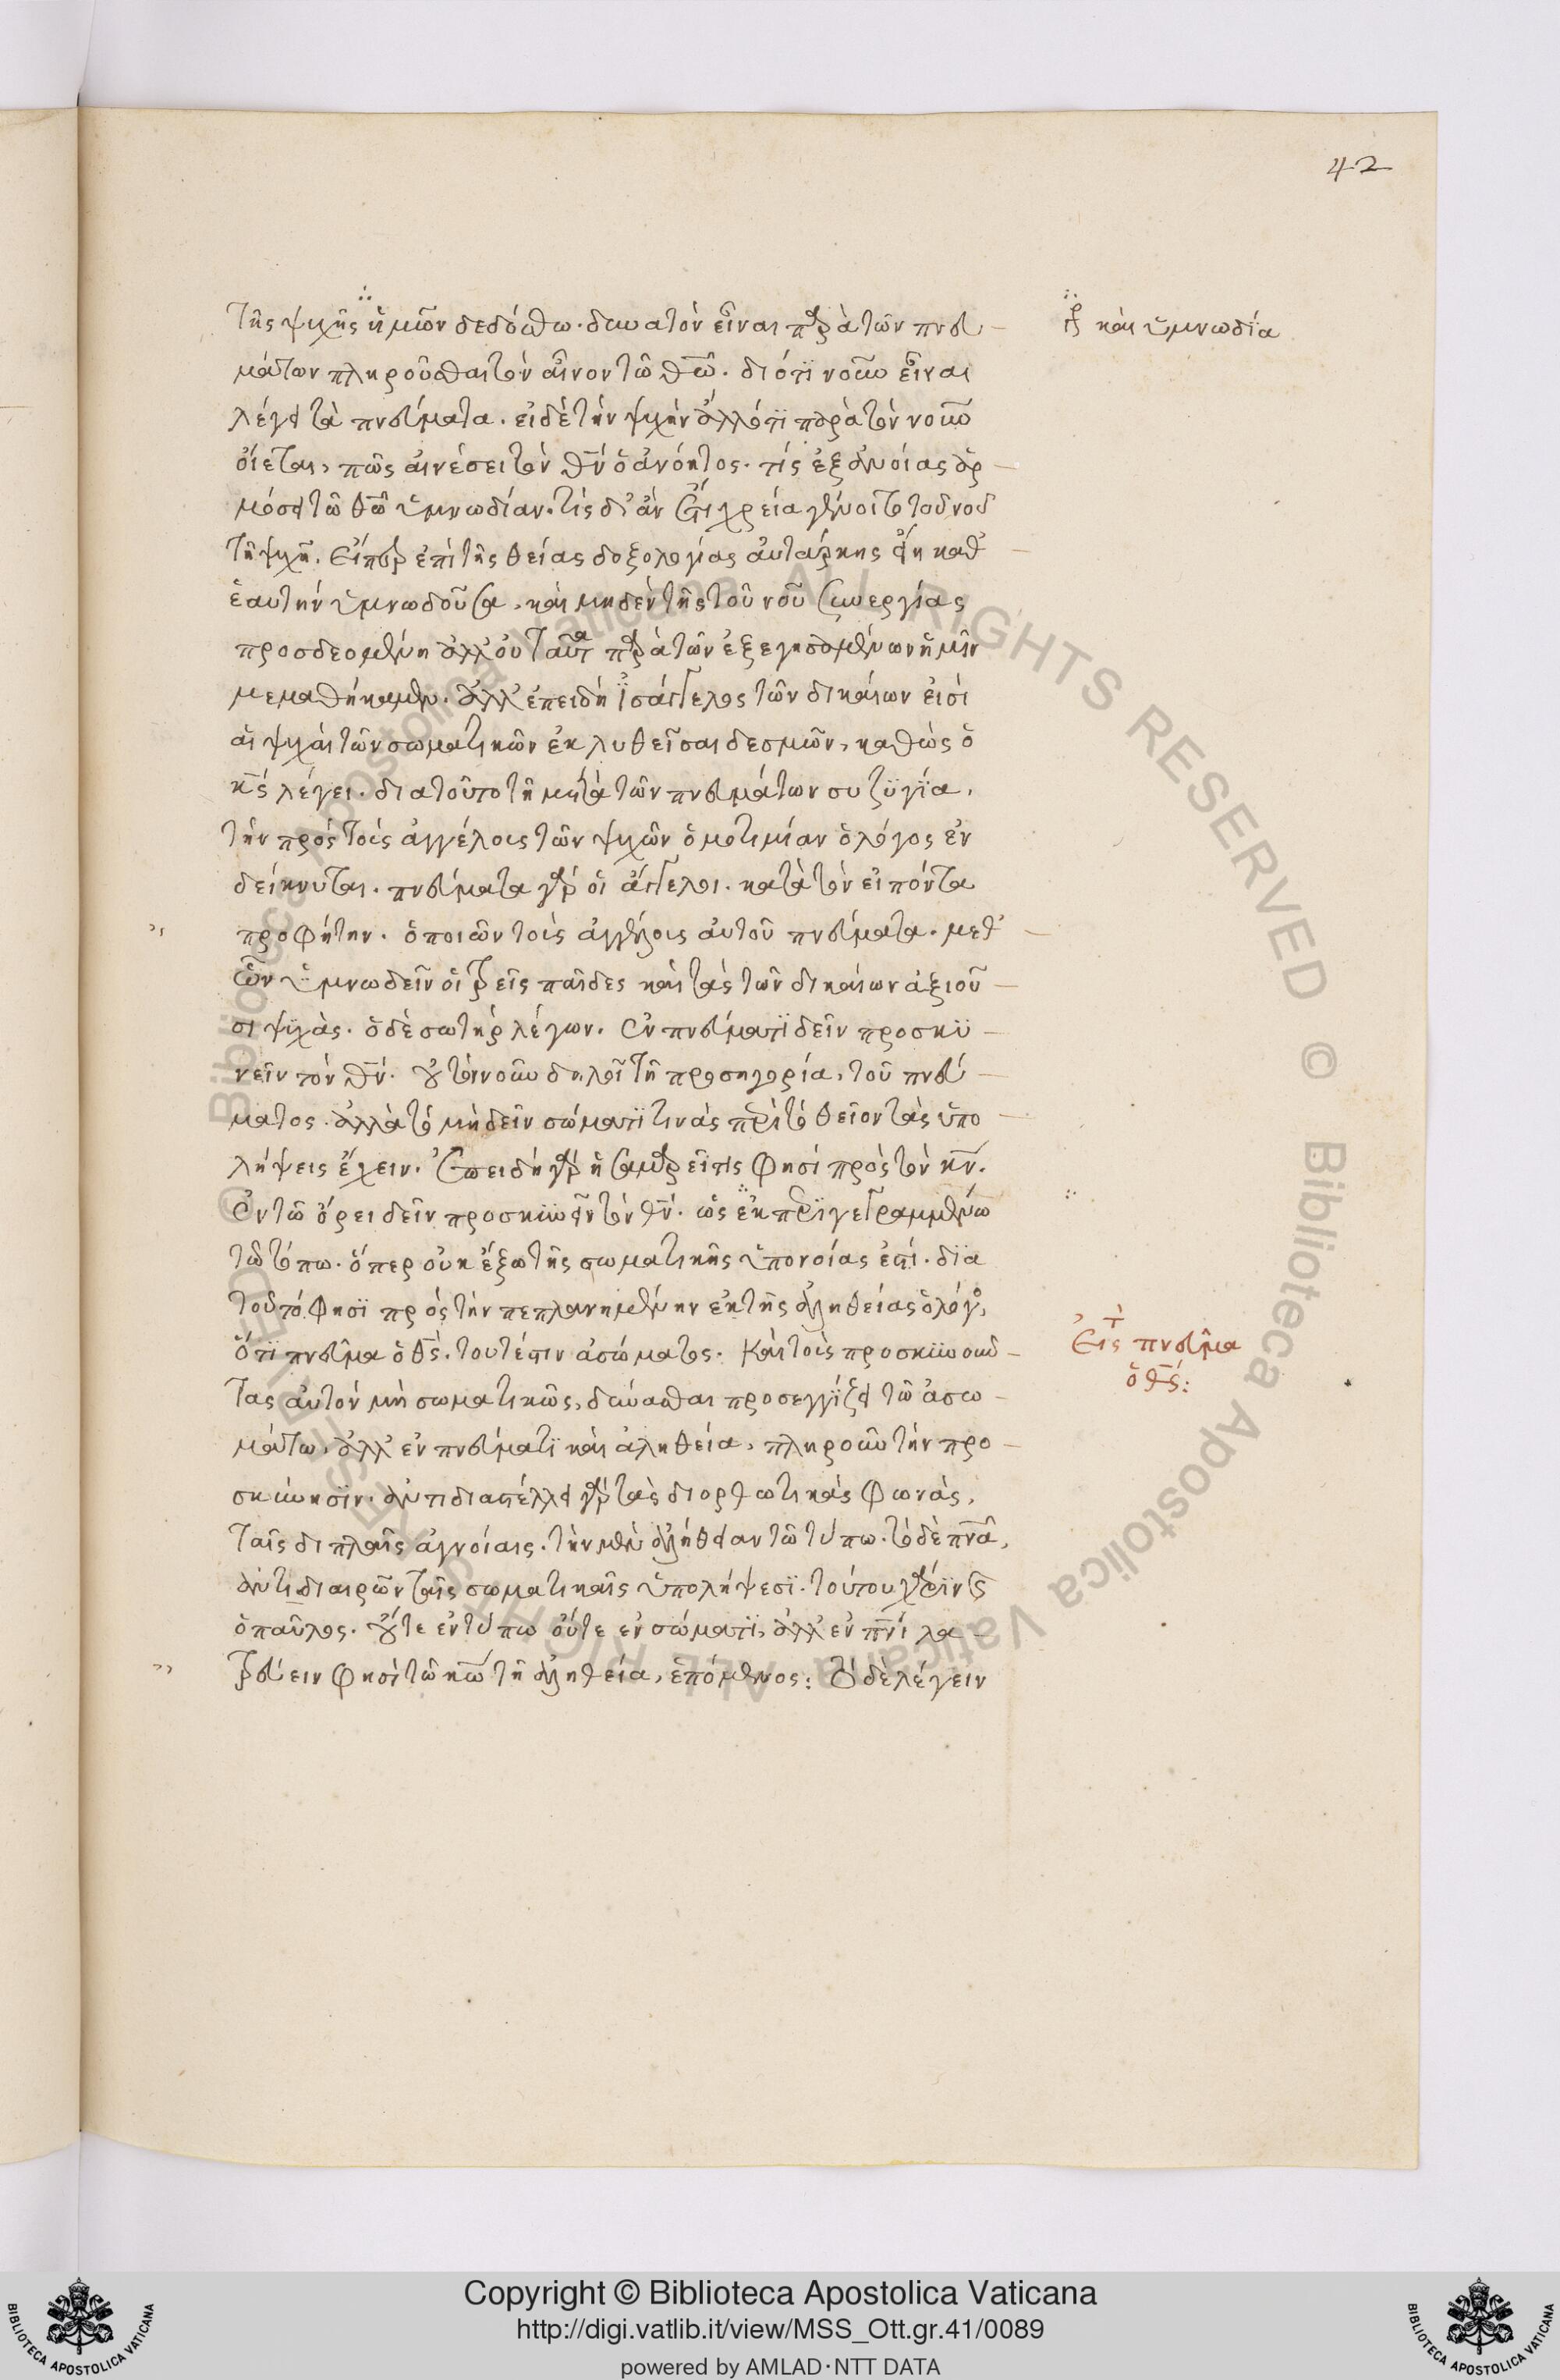 42
τῆς ψχῆς ἡμῶν δεδόσθω. δυνατὸν εἶναι παρὰ τῶν πνευ-
μάτων πληροῦσθαι τὸν αἶνον τῶ θῶ. διότι νοῦν εἶναι
λέγει τὰ πνεύματα. εἰ δὲ τὴν ψχὴν ἄλλό τι παρὰ τὸν νοῦν
οἴεται, πῶς αἰνέσει τὸν θν ὁ ἀνόητος. τίς ἐξ ἀνοίας ἁρ-
μόσει τῶ θῶ ὑμνωδίαν. τίς δ' ἂν ἔτι χρεία γένοιτο τοῦ νοῦ
τῆ ψχῆ. εἴπερ ἐπὶ τῆς θείας δοξολογίας ἀυτάρκης εἴη καθ'
ἑαυτὴν ὑμνωδοῦσα, καὶ μηδὲν τῆς τοῦ νοῦ συνεργίας
προσδεομένη ἀλλ' οὐ ταῦτα παρὰ τῶν ἐξεγησαμένων ἡμῖν
μεμαθήκαμεν. ἀλλ' ἐπειδὴ ἰσάγγελος τῶν δικαίων εἰσὶ
αἱ ψχαὶ τῶν σωματικῶν ἐκλυθεῖσαι δεσμῶν, καθὼς ὁ
κς λέγει. δια τοῦτο τῆ μετὰ τῶν πνευμάτων συζϋγία,
τὴν πρὸς τοὶς ἀγγέλοις τῶν ψχῶν ὁμοτιμίαν ὁ λόγος ἐν
δείκνυται. πνεύματα γὰρ οἱ ἄγγελοι. κατὰ τὸν εἰπόντα
προφήτην. ὁ ποιῶν τοὶς ἀγγέλοις ἀυτοῦ πνεύματα. μεθ'
ὧν ὑμνωδεῖν οἱ τρεῖς παῖδες καὶ τὰς τῶν δικαίων ἀξιοῦ-
σι ψϋχὰς. ὁ δὲ σωτὴρ λέγων. ἐν πνεύματι δεῖν προσκϋ-
νεῖν τὸν θν. οὐ τὸν νοῦν δηλοῖ τῆ προσηγορία, τοῦ πνεύ-
ματος. ἀλλὰ τὸ μὴ δεῖν σώματϊ τινὰς περὶ τὸ θεῖον τὰς ὑπο-
λήψεις ἔχειν. ἐπειδὴ γὰρ ἡ σαμαρεῖτις φησὶ πρὸς τὸν κν.
ἐν τῶ ὄρει δεῖν προσκυνεῖν τὸν θν. ὡς ἐκ περιγεγραμμένω
τῶ τόπω. ὅπερ οὐκ ἔξω τῆς σωματικῆς ὑπονοίας ἐστί. δϊα
τοῦτό φησϊ πρὸς τὴν πεπλανημένην ἐκ τῆς ἀληθείας ὁ λόγος,
ὅτϊ πνεῦμα ὁ θς. τουτέστιν ἀσώματος. καὶ τοὶς προσκυνοῦν-
τας ἀυτὸν μὴ σωματικῶς, δύνασθαι προσεγγίζει τῶ ἀσω-
μάτω, ἀλλ' ἐν πνεύματϊ καὶ ἀληθεία, πληροῦν τὴν προ-
σκύνησϊν. ἀντιδιαστέλλει γὰρ τὰς διορθωτικὰς φωνὰς,
ταῖς διπλαῖς ἀγνοίαις. τὴν μὲν ἀλήθειαν τῶ τύπω. τὸ δὲ πνᾶ,
ἀντιδιαιρῶν ταῖς σωματικαῖς ὑπολήψεσϊ. τούτου χάρϊν
ὁ παῦλος. οὔτε ἐν τύπω οὔτε ἐν σώματϊ, ἀλλ' ἐν πνί λα-
τρεύειν φησὶ τῶ κω τῆ ἀληθεία, ἑπόμενος: τὸ δὲ λέγειν
καὶ ὑμνωδία
Εἰς τὸ πνεῦμα
ὁ θς:
Copyright © Biblioteca Apostolica Vaticana
http://digi.vatlib.it/view/MSS_Ott.gr.41/0089
powered by AMLAD·NTT DATA
BIBLIOTECA APOSTOLICA VATICANA
BIBLIOTECA APOSTOLICA VATICANA
© Biblioteca Apostolica Vaticana ALL RIGHTS RESERVED © Biblioteca Apostolica Vaticana ALL RIGHTS RESERVED